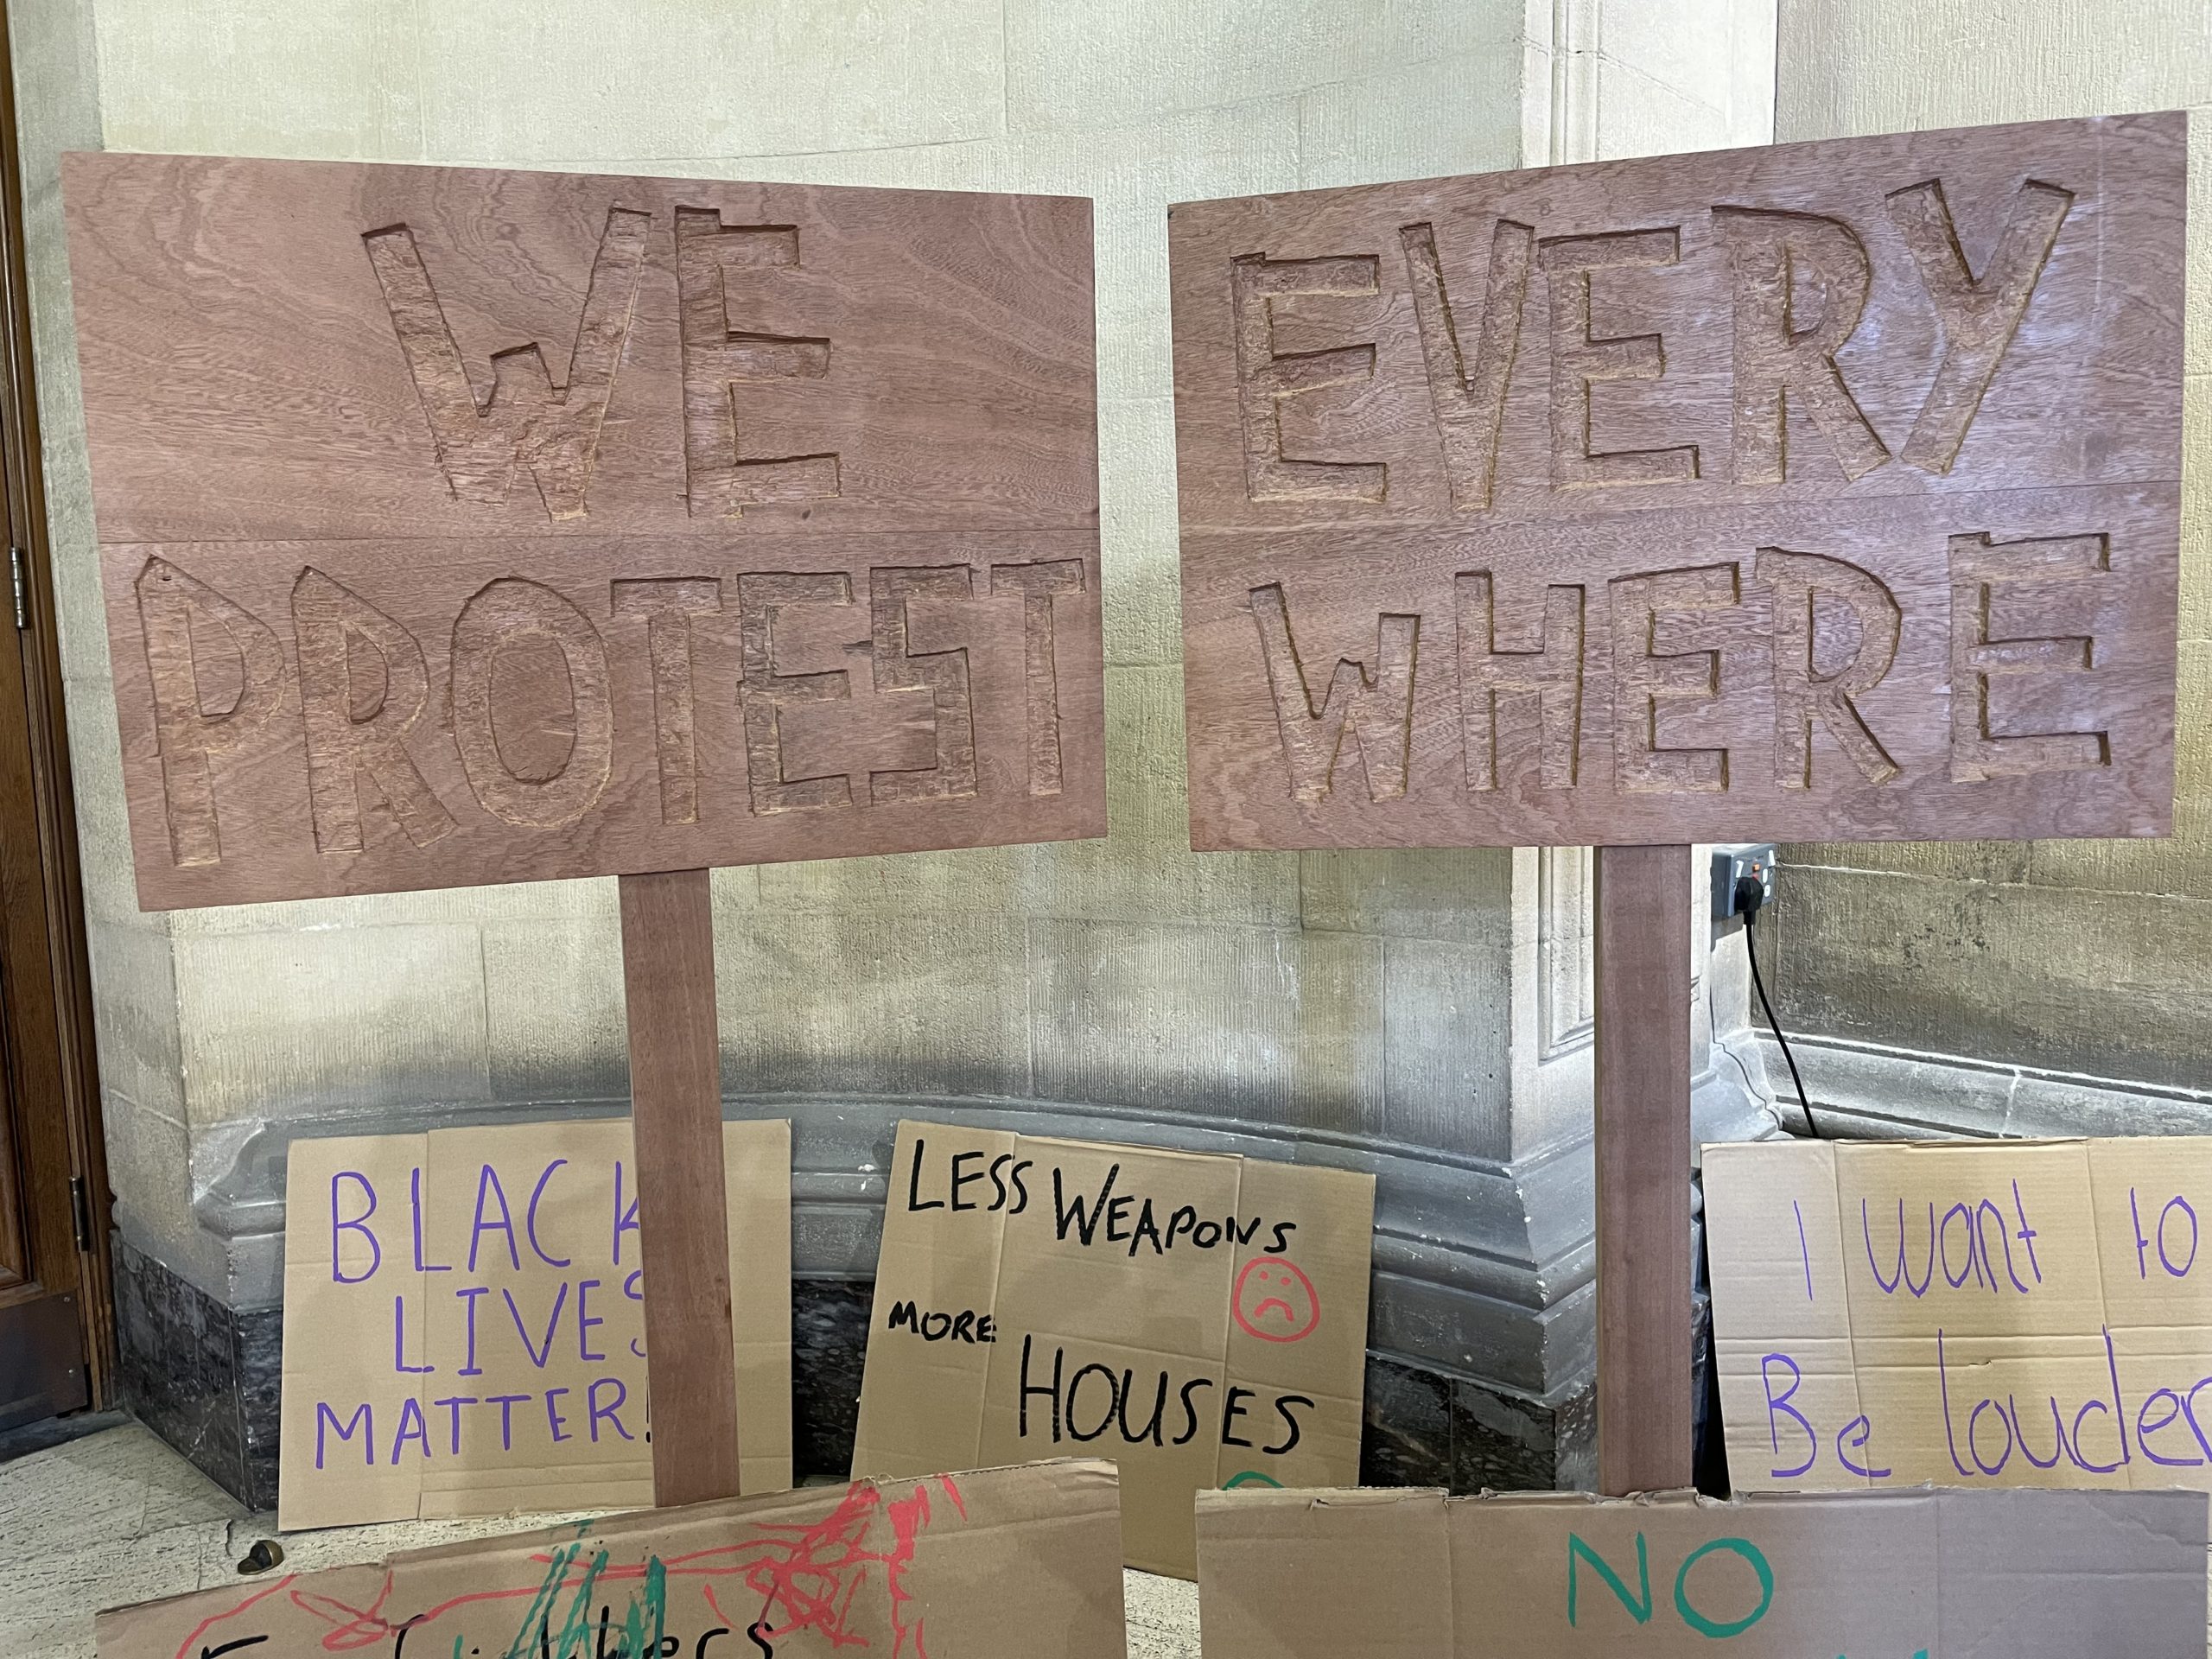 WE
PROTEST
EVERY
WHERE
BLACK
LIVES
MATTER!
LESS WEAPONS
MORE
HOUSES
I want to
Be louder
NO